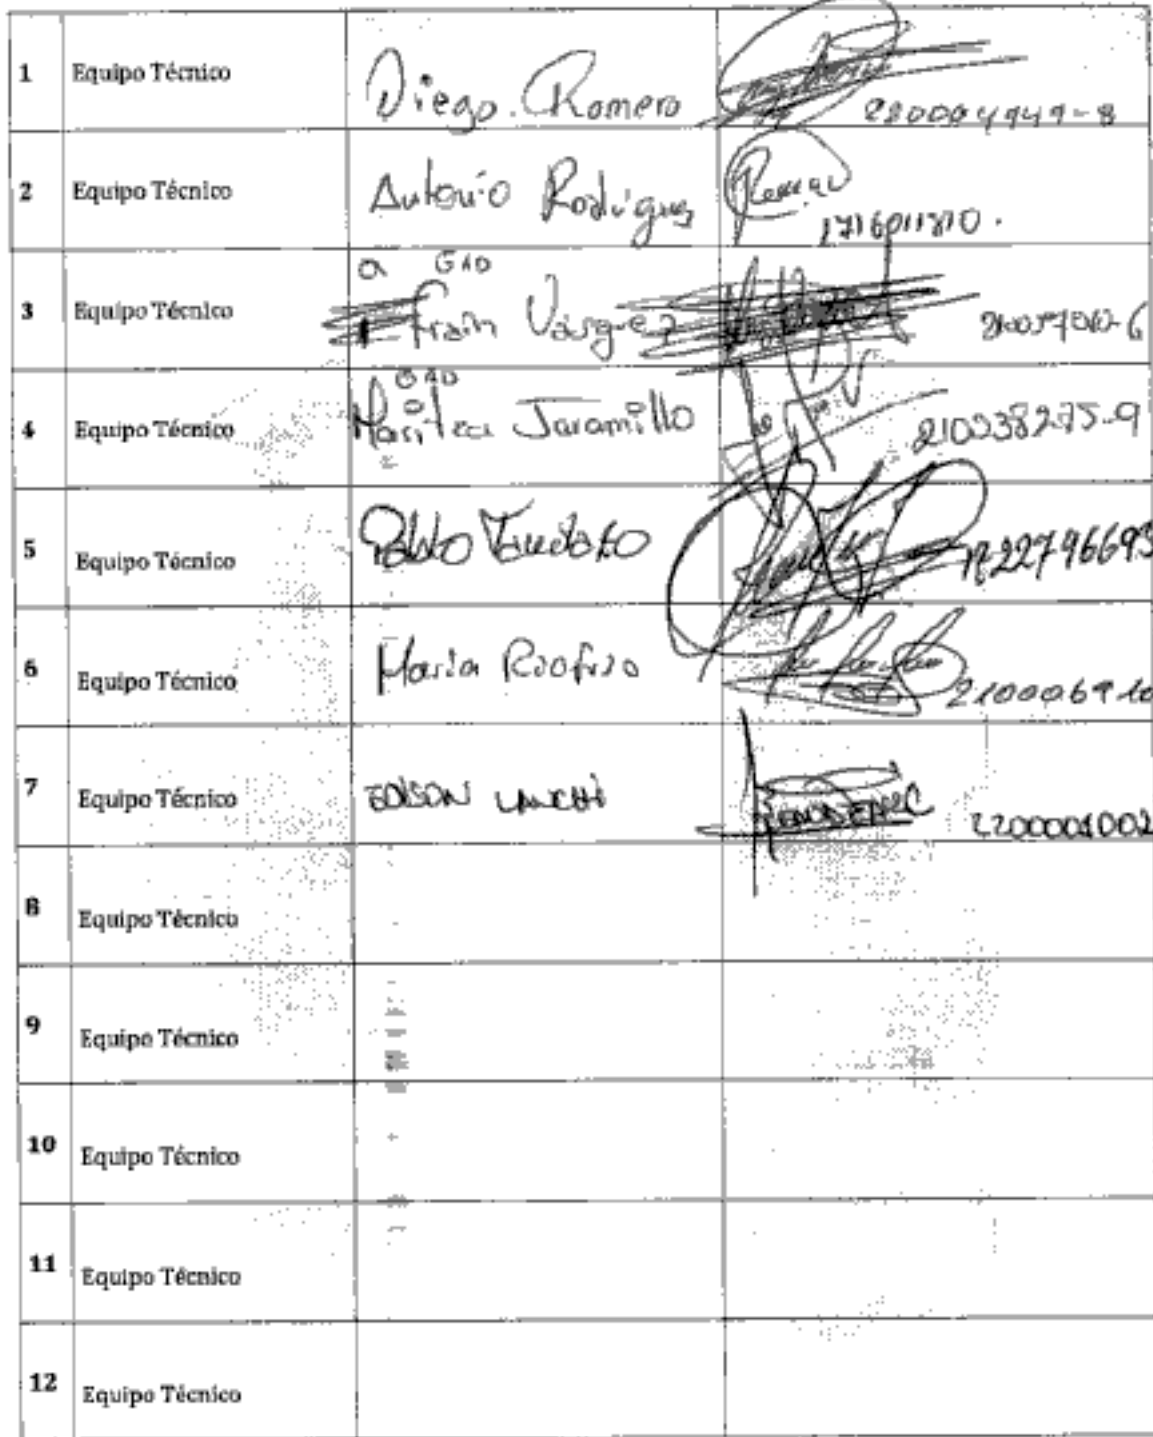 1 Equipo Técnico Diego Romero
2 Equipo Técnico Antonio Rodríguez 1716011810.
GAD
3 Equipo Técnico Vásquez
GAD
4 Equipo Técnico Maritza Jaramillo 210038275-9
5 Equipo Técnico Pablo 1722796693
6 Equipo Técnico María Riofrio 210006910
7 Equipo Técnico EDISON 2200001002
8 Equipo Técnico
9 Equipo Técnico
10 Equipo Técnico
11 Equipo Técnico
12 Equipo Técnico